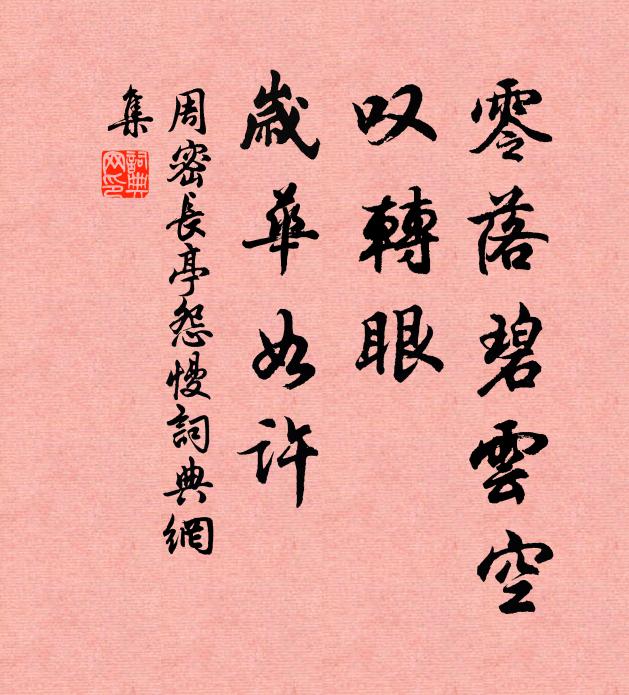 零落碧雲空
叹轉眼
歲華如許
周密長亭怨慢詞典網
集
詞典
网印